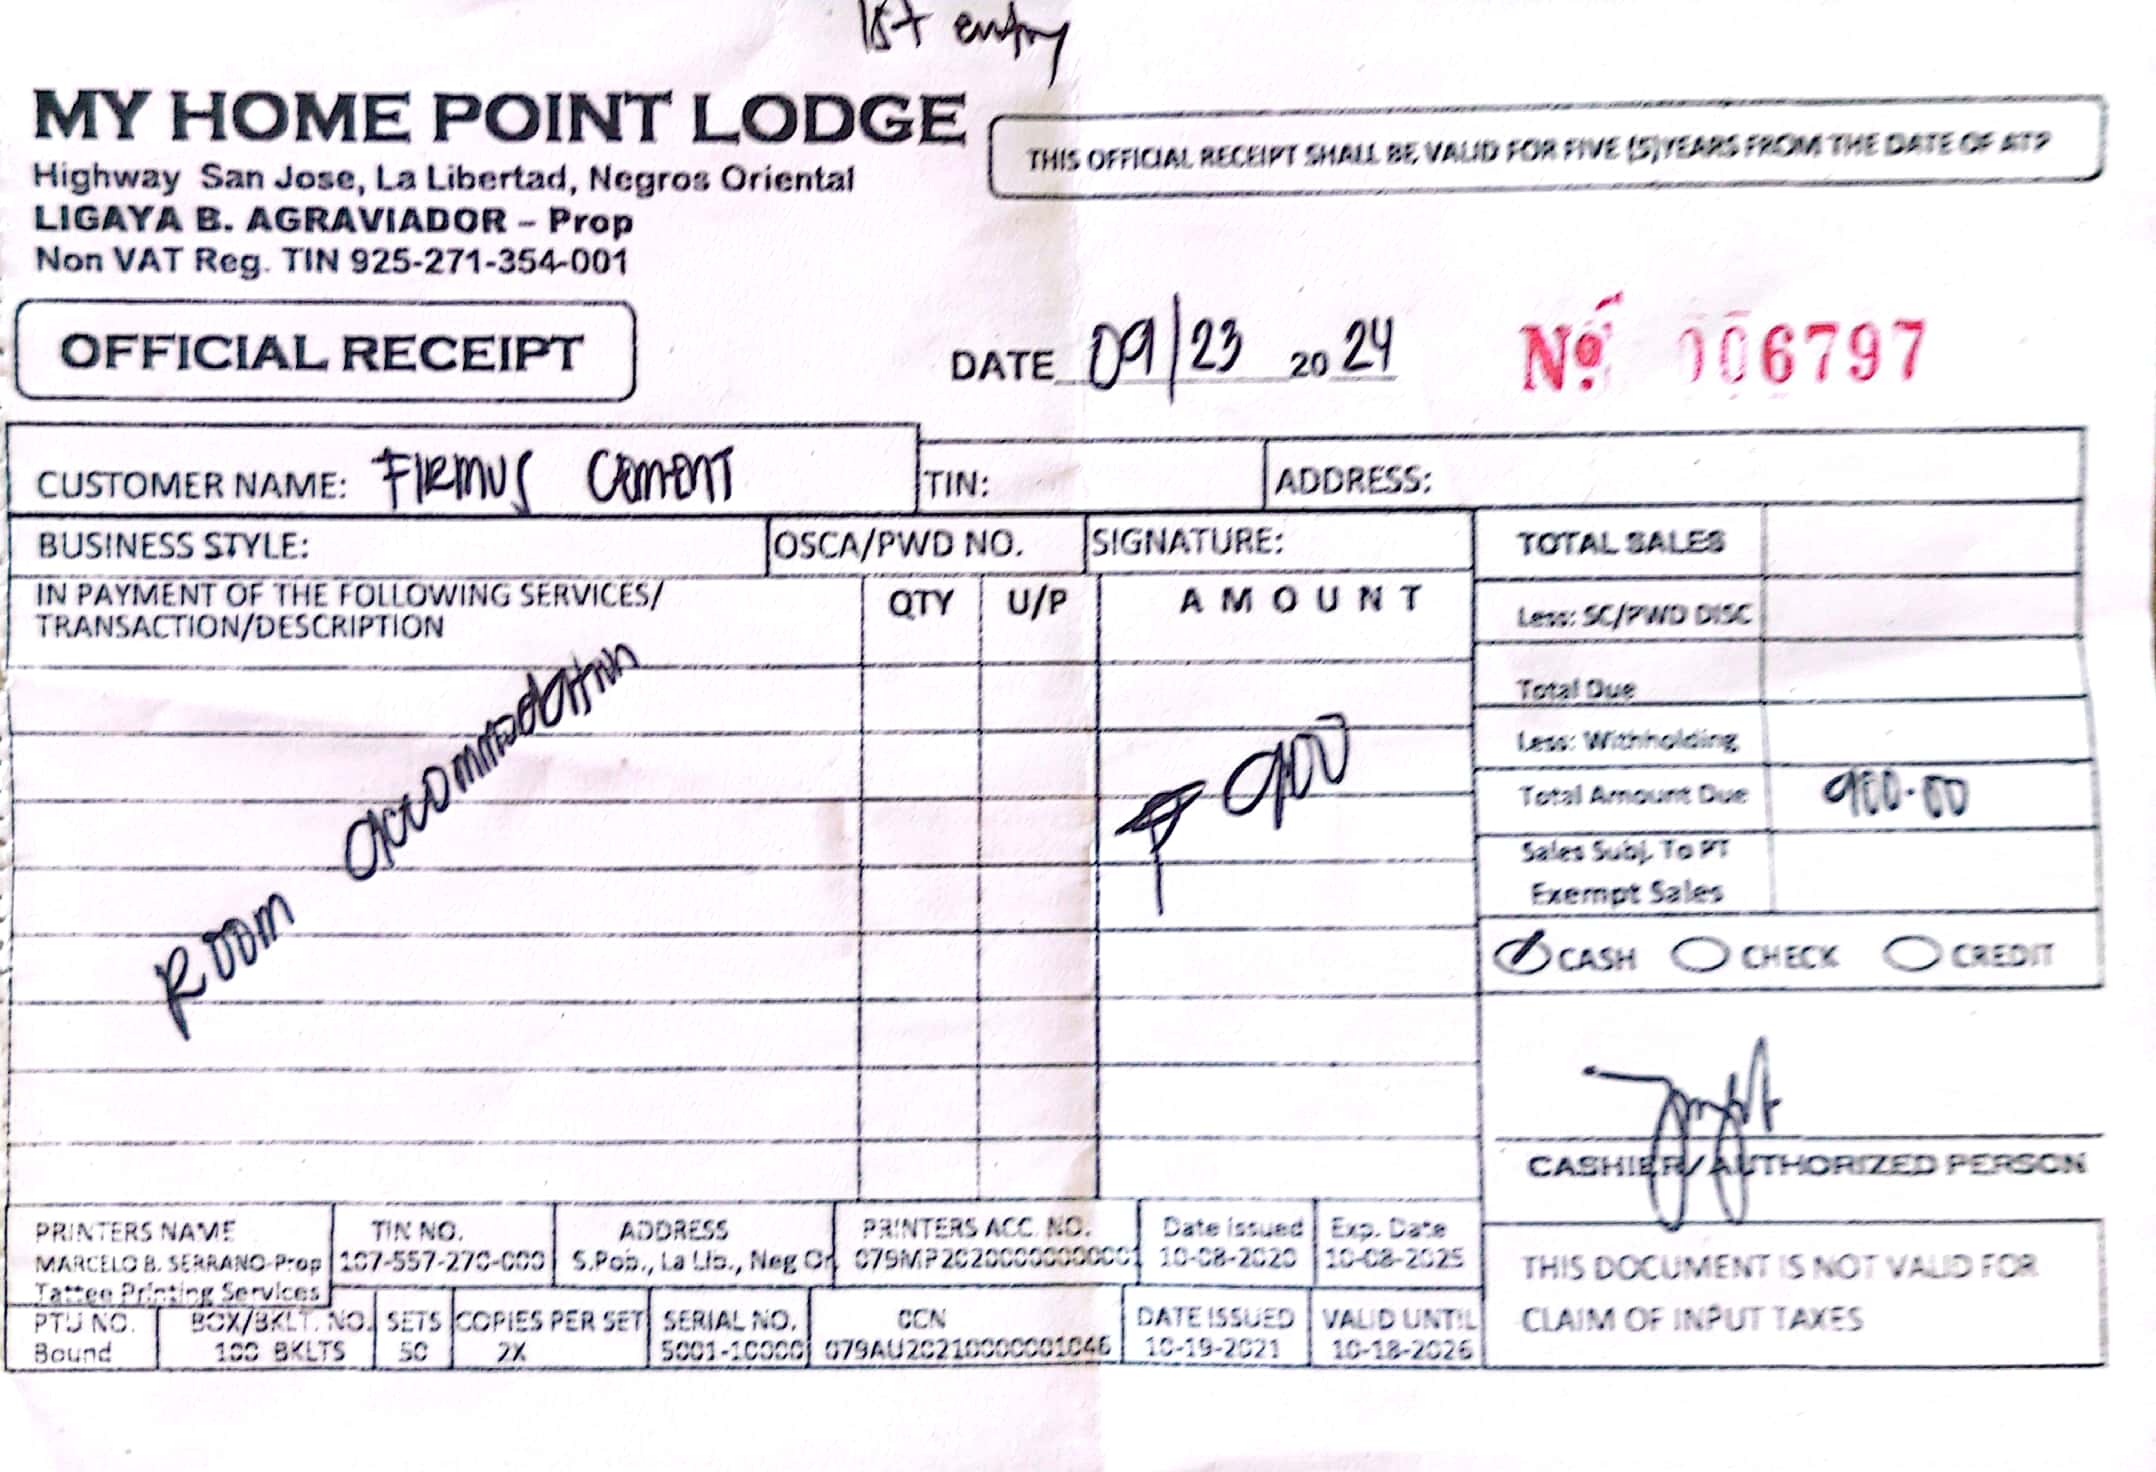 1st entry
MY HOME POINT LODGE
Highway San Jose, La Libertad, Negros Oriental
LIGAYA B. AGRAVIADOR – Prop
Non VAT Reg. TIN 925-271-354-001
THIS OFFICIAL RECEIPT SHALL BE VALID FOR FIVE (5)YEARS FROM THE DATE OF ATP
OFFICIAL RECEIPT
DATE 09/23 20 24
Nº 006797
CUSTOMER NAME: FIRMUS CEMENT
TIN:
ADDRESS:
BUSINESS STYLE:
OSCA/PWD NO.
SIGNATURE:
IN PAYMENT OF THE FOLLOWING SERVICES/
TRANSACTION/DESCRIPTION
QTY
U/P
AMOUNT
Room accommodation
₱ 900
TOTAL SALES
Less: SC/PWD DISC
Total Due
Less: Withholding
Total Amount Due 900.00
Sales Subj. To PT
Exempt Sales
CASH CHECK CREDIT
CASHIER/AUTHORIZED PERSON
PRINTERS NAME
MARCELO B. SERRANO-Prop
Tattee Printing Services
TIN NO.
107-557-270-000
ADDRESS
S.Pob., La Lib., Neg Or
PRINTERS ACC. NO.
079MP20200000000001
Date issued
10-08-2020
Exp. Date
10-08-2025
PTU NO.
Bound
BOX/BKLT. NO.
100 BKLTS
SETS
50
COPIES PER SET
2X
SERIAL NO.
5001-10000
OCN
079AU20210000001046
DATE ISSUED
10-19-2021
VALID UNTIL
10-18-2026
THIS DOCUMENT IS NOT VALID FOR
CLAIM OF INPUT TAXES